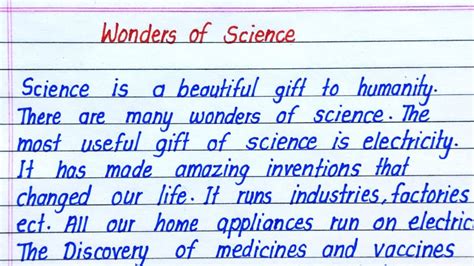 Wonders of Science
Science is a beautiful gift to humanity.
There are many wonders of science. The
most useful gift of science is electricity.
It has made amazing inventions that
changed our life. It runs industries, factories
ect. All our home appliances run on electric
The Discovery of medicines and vaccines